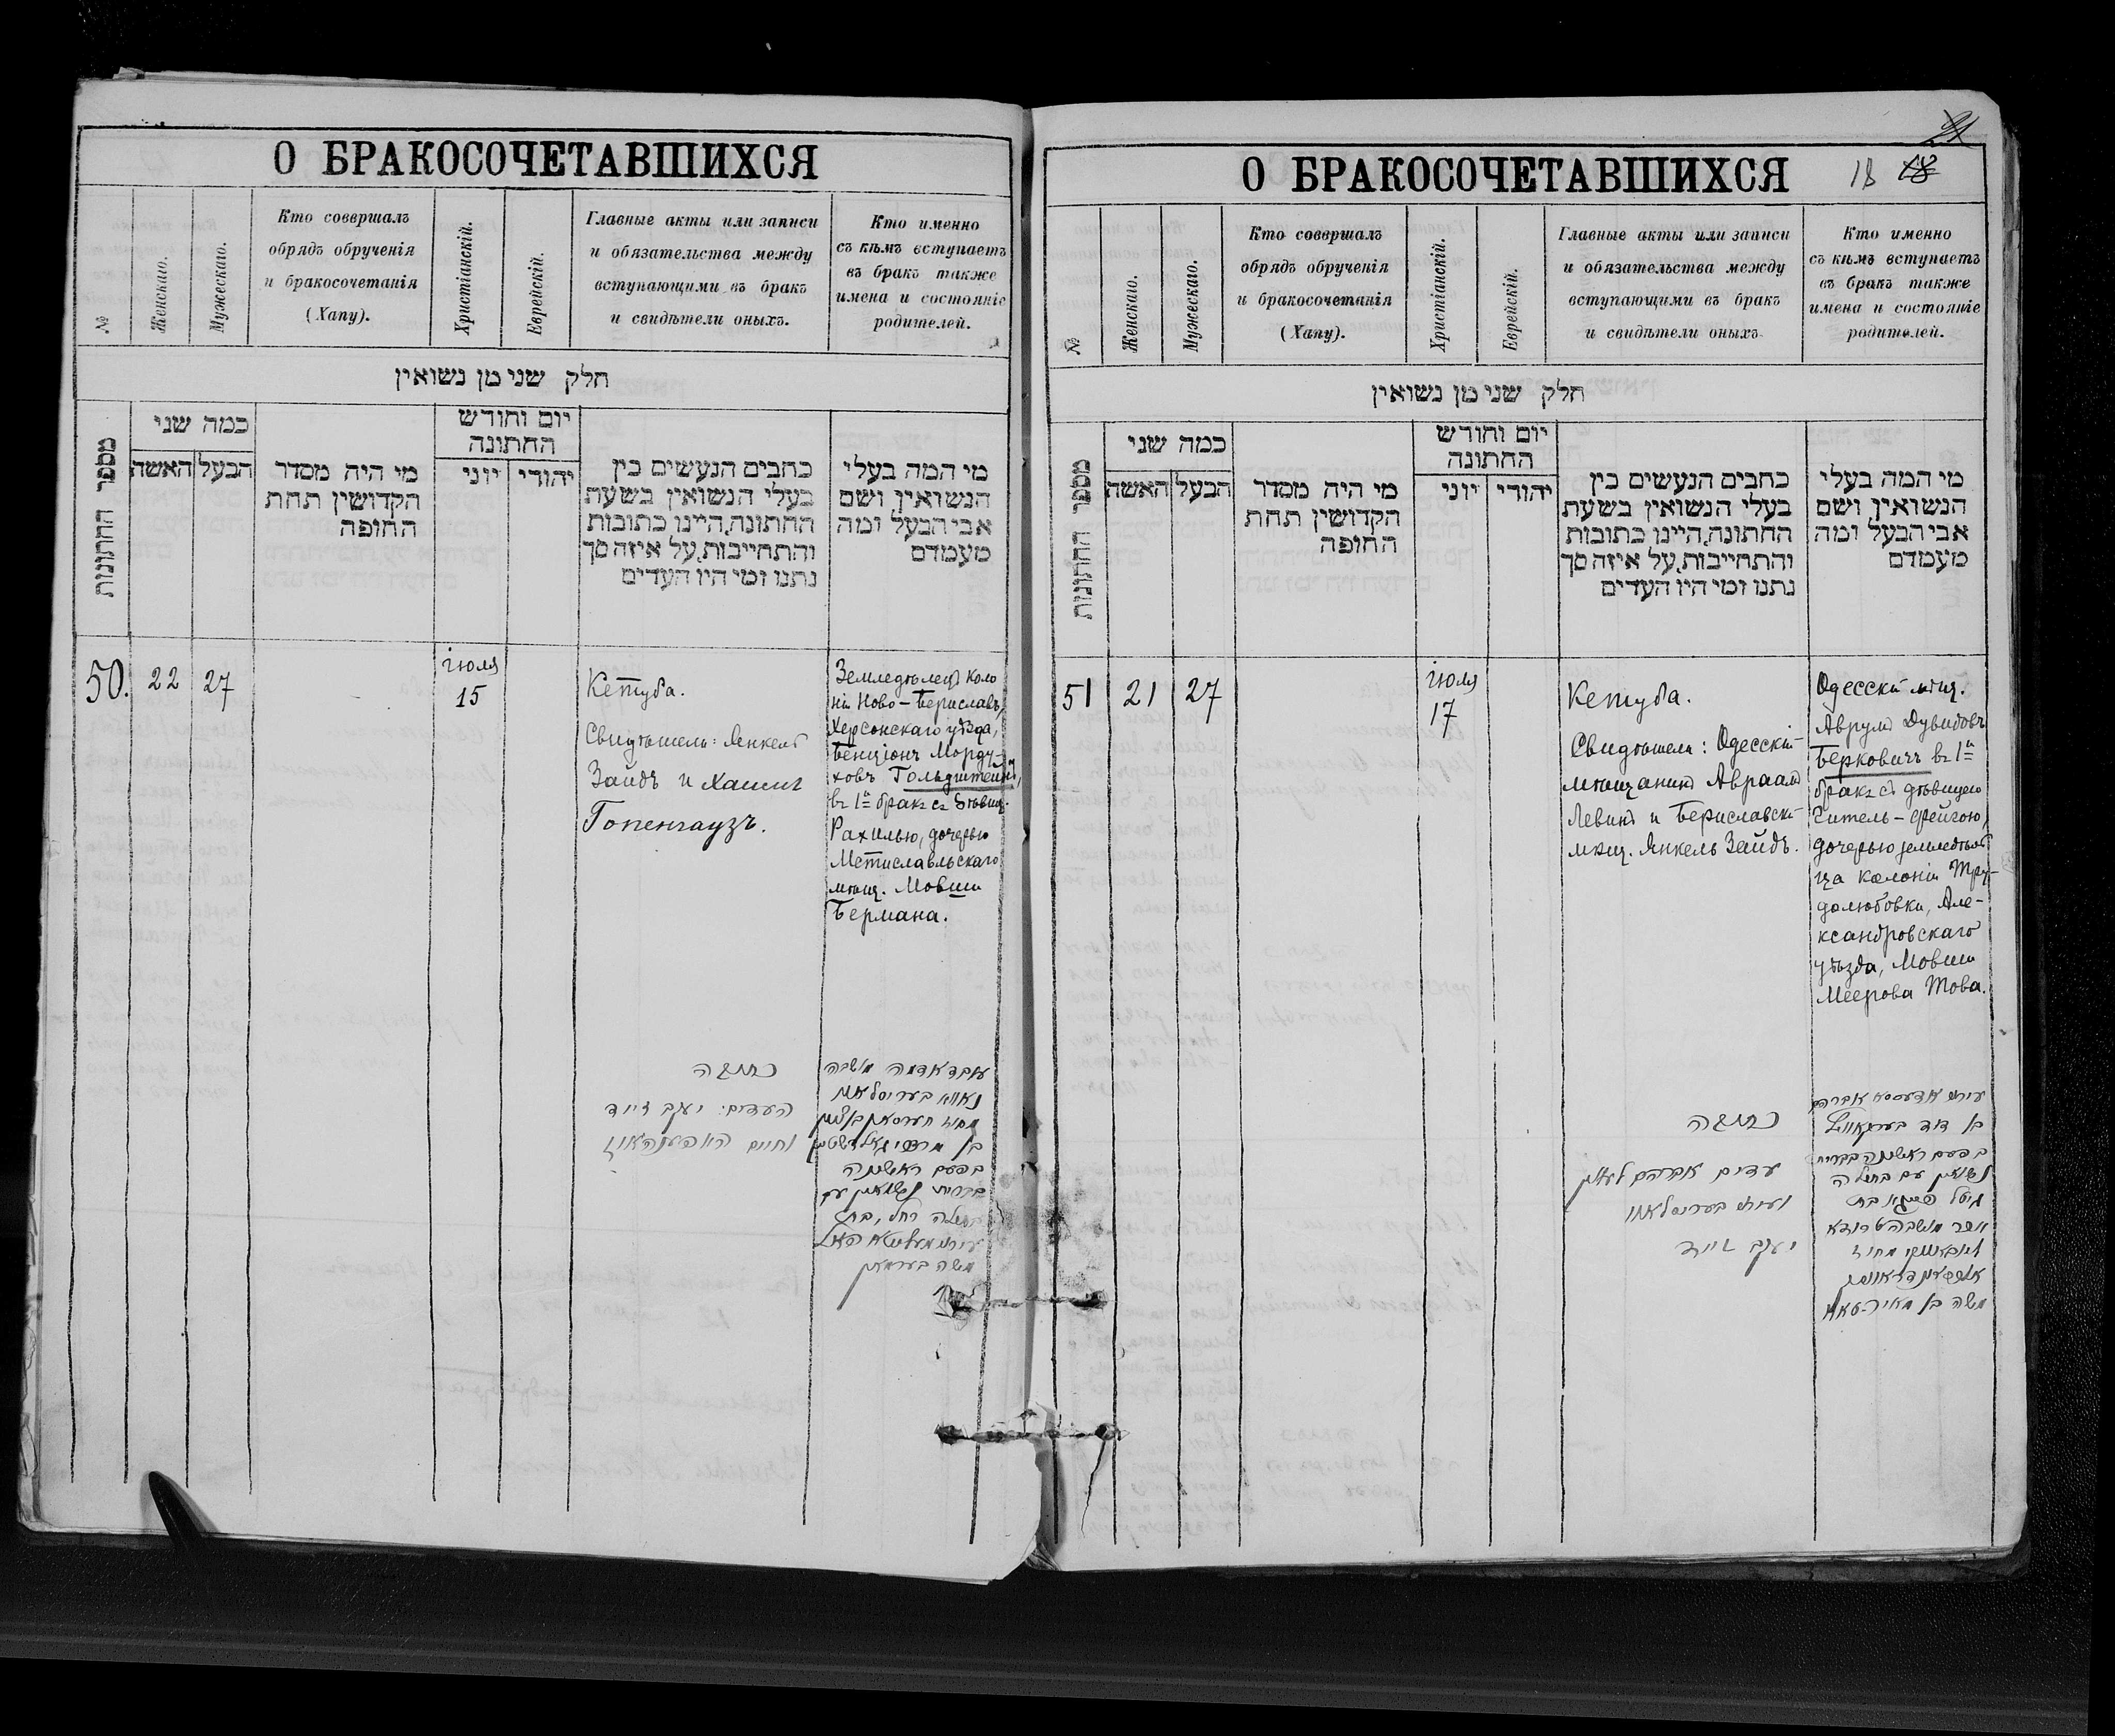 О БРАКОСОЧЕТАВШИХСЯ
№
Женскаго.
Мужескаго.
Кто совершалъ
обрядъ обрученія
и бракосочетанія
(Хапу).
Христіанскій.
Еврейскій.
Главные акты или записи
и обязательства между
вступающими въ бракъ
и свидѣтели оныхъ.
Кто именно
съ кѣмъ вступаетъ
въ бракъ также
имена и состояніе
родителей.
חלק שני מן נשואין
מספר החתונות
כמה שני
האשה
הבעל
מי היה מסדר
הקדושין תחת
החופה
יום וחודש
החתונה
יוני
יהודי
כתבים הנעשים בין
בעלי הנשואין בשעת
החתונה,היינו כתובות
והתחייבות,על איזה סך
נתנו ומי היו העדים
מי המה בעלי
הנשואין ושם
אבי הבעל ומה
מעמדם
50.
22
27
іюля
15
Кетуба.
Свидѣтели: Янкель
Зайдъ и Хаимъ
Гопенгаузъ.
Земледѣлецъ коло
ніи Ново-Бериславъ,
Херсонскаго уѣзда,
Бенціонъ Морду-
ховъ Гольдштейнъ,
въ 1й бракъ съ дѣвиц.
Рахилью, дочерью
Мстиславльскаго
мѣщ. Мовши
Бермана.
כתובה
העדים: יעקב זייד
וחיים האפענהאוז
עובד אדמה מושבה
בפעם ראשונה
משה בערמאן
О БРАКОСОЧЕТАВШИХСЯ
18
№
Женскаго.
Мужескаго.
Кто совершалъ
обрядъ обрученія
и бракосочетанія
(Хапу).
Христіанскій.
Еврейскій.
Главные акты или записи
и обязательства между
вступающими въ бракъ
и свидѣтели оныхъ.
Кто именно
съ кѣмъ вступаетъ
въ бракъ также
имена и состояніе
родителей.
חלק שני מן נשואין
מספר החתונות
כמה שני
האשה
הבעל
מי היה מסדר
הקדושין תחת
החופה
יום וחודש
החתונה
יוני
יהודי
כתבים הנעשים בין
בעלי הנשואין בשעת
החתונה,היינו כתובות
והתחייבות,על איזה סך
נתנו ומי היו העדים
מי המה בעלי
הנשואין ושם
אבי הבעל ומה
מעמדם
51
21
27
іюля
17
Кетуба.
Свидѣтели: Одесскій
мѣщанинъ Авраамъ
Левинъ и Бериславскій
мѣщ. Янкель Зайдъ.
Одесскій мѣщ.
Аврумъ Дувидовъ
Берковичъ въ 1й
бракъ съ дѣвицею
Гитель-Фейгою,
дочерью земледѣль
ца колоніи Тру-
долюбовки, Але-
ксандровскаго
уѣзда, Мовши
Меерова Това.
כתובה
עדים אברהם לעווין
יעקב זייד
בן דוד בערקאוויץ
משה בן מאיר טאוו